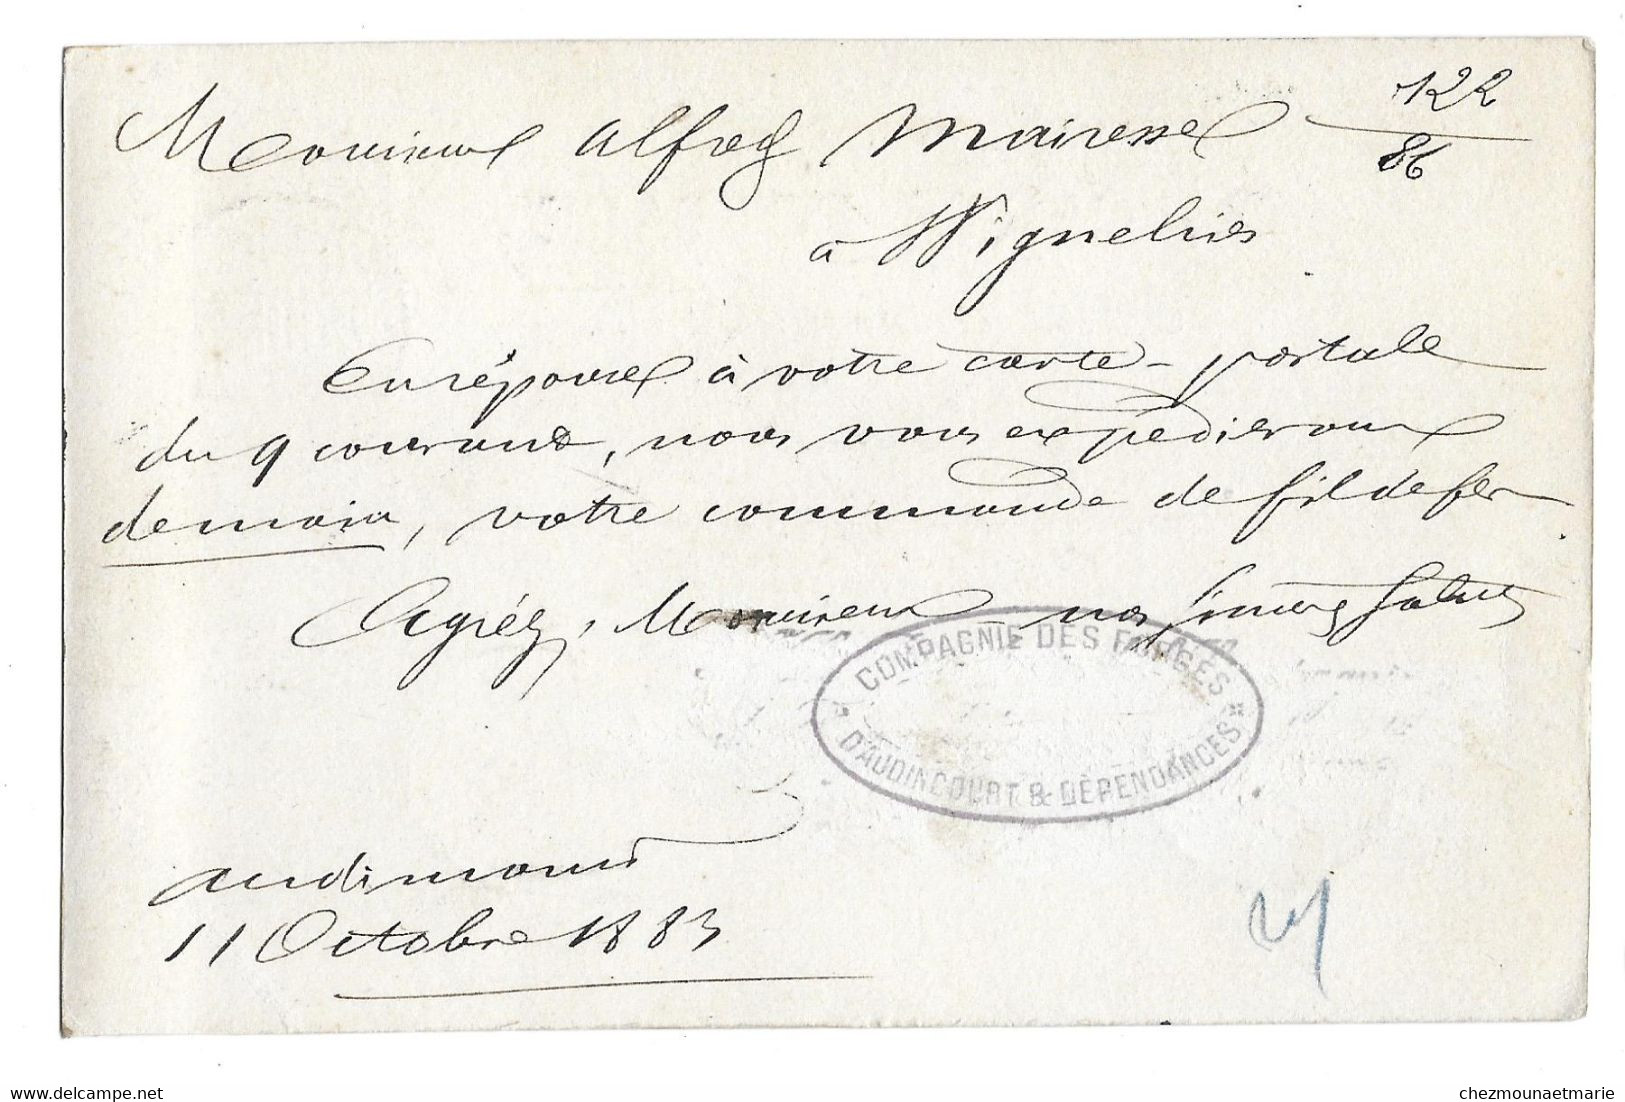 122
86
Monsieur Alfred Mairesse
à Wignehies
En réponse à votre carte-postale
du 9 courant, nous vous expédierons
demain, votre commande de fil de fer.
Agréez, Monsieur nos sincères saluts
COMPAGNIE DES FORGES
D'AUDINCOURT & DÉPENDANCES
Audincourt
11 Octobre 1883
delcampe.net
chezmounaetmarie